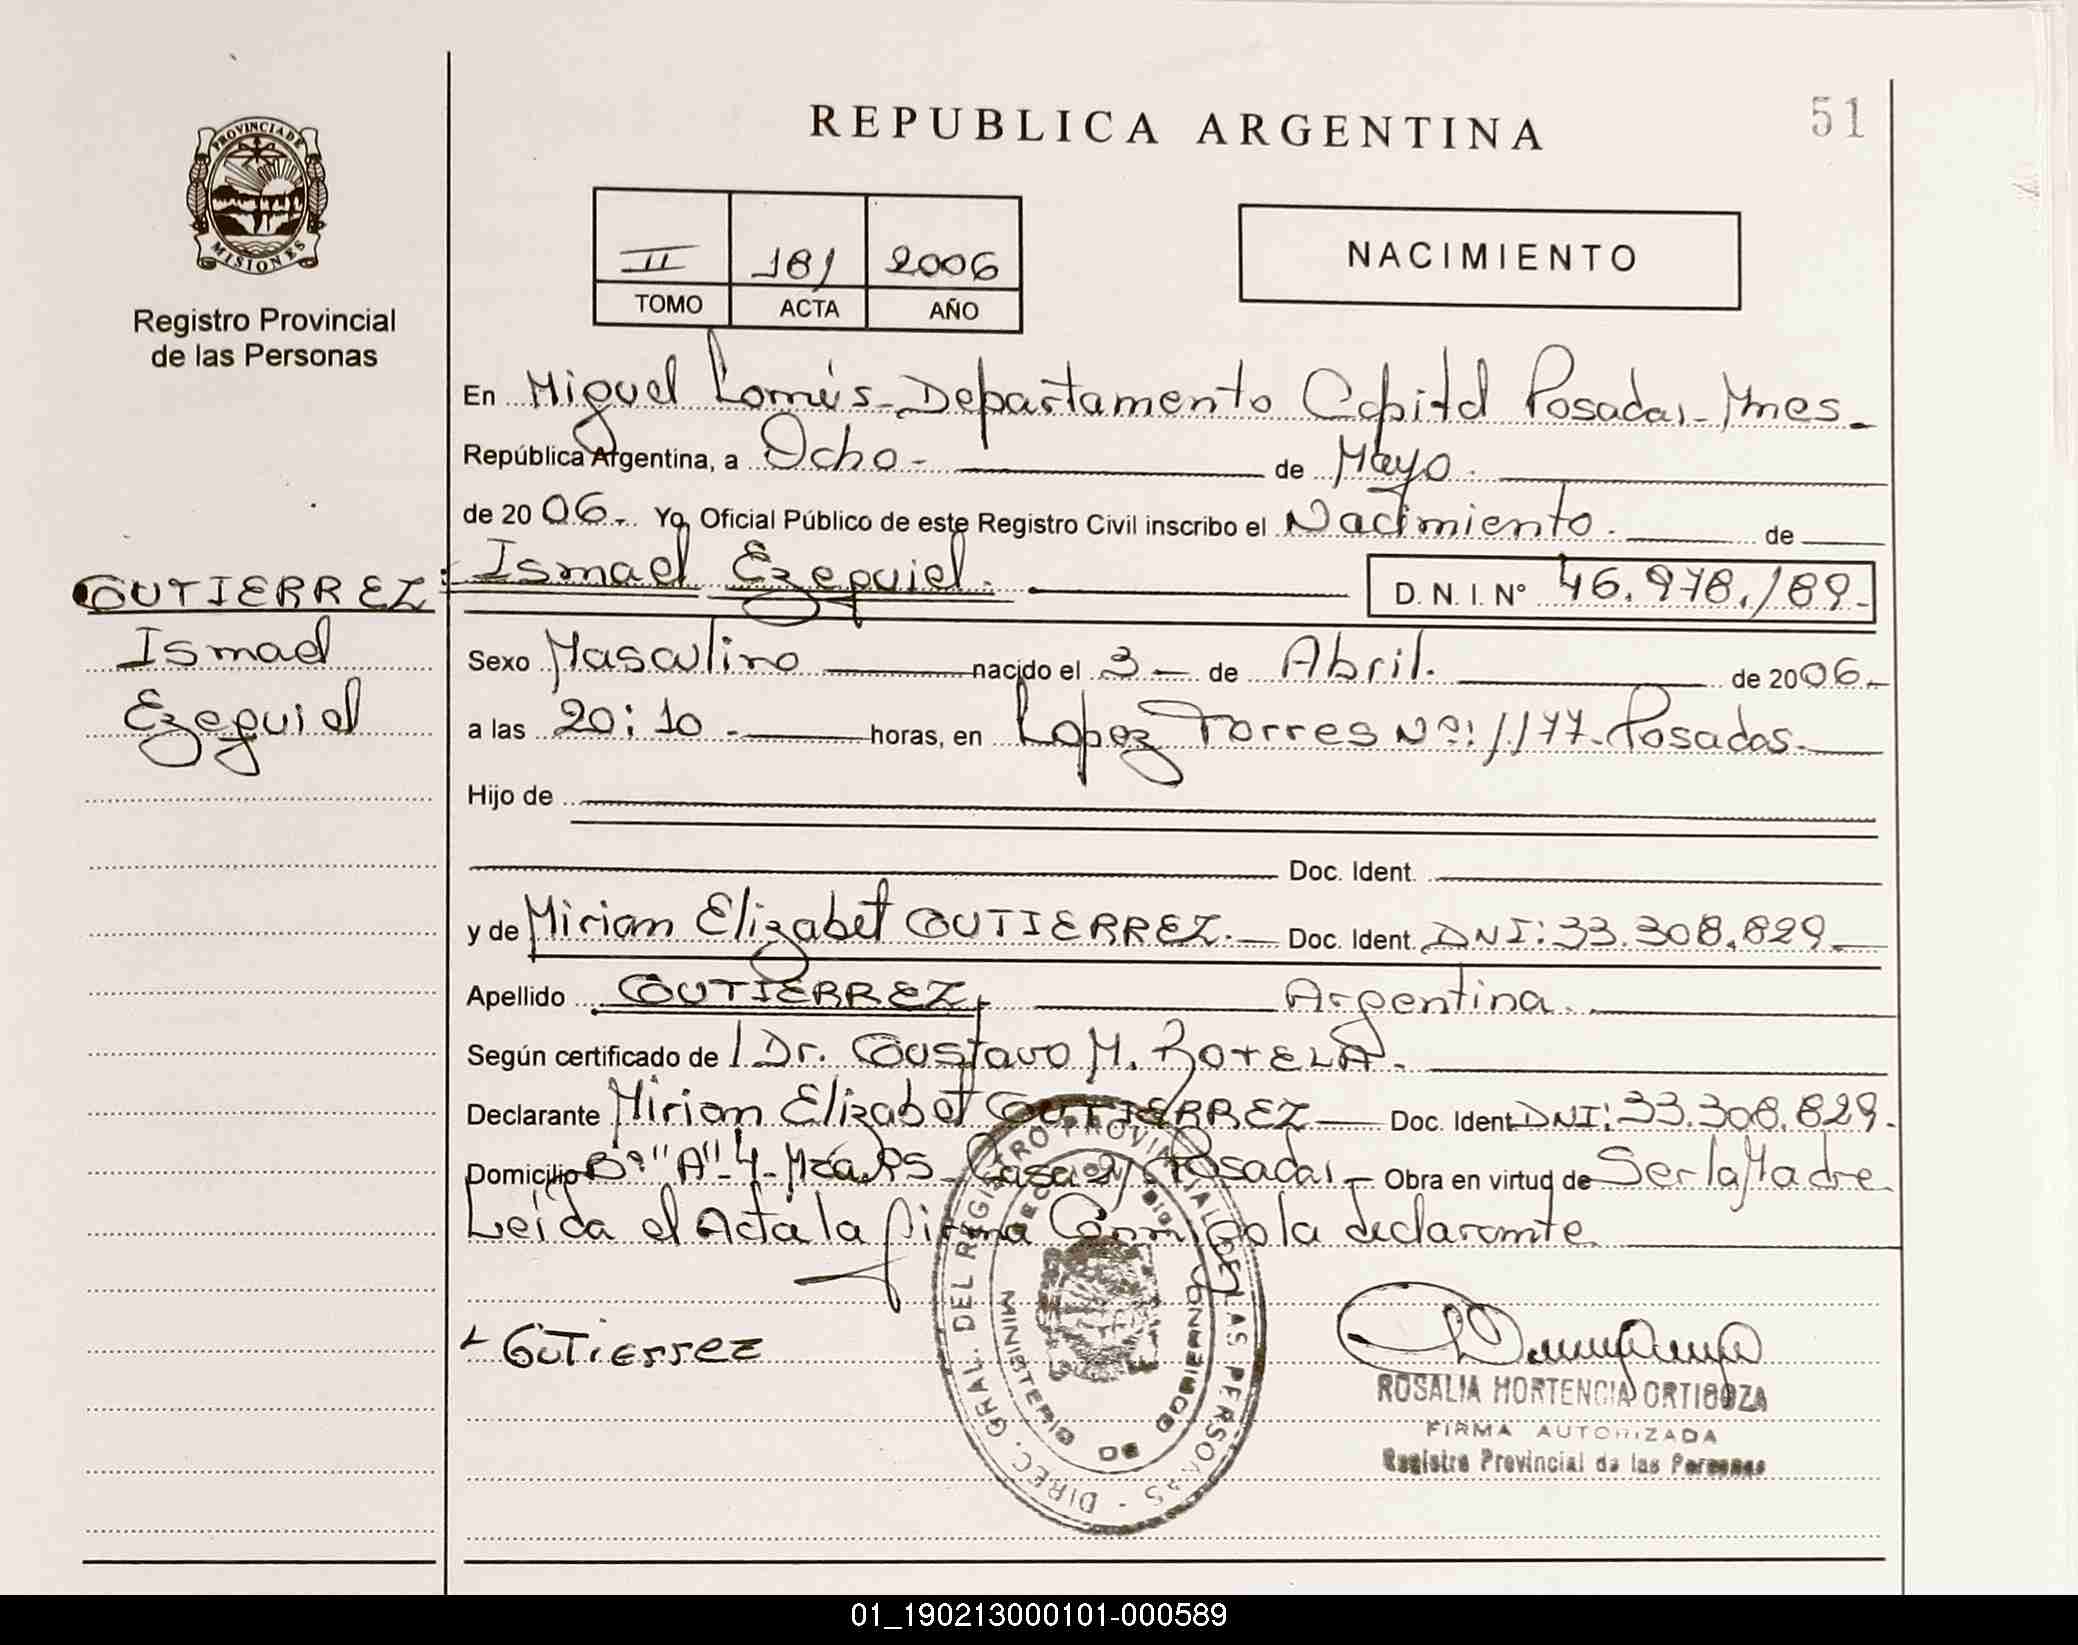 REPUBLICA ARGENTINA
51
PROVINCIA DE
MISIONES
Registro Provincial
de las Personas
II 181 2006
TOMO ACTA AÑO
NACIMIENTO
En Miguel Lanús - Departamento Capital Posadas - Mnes.
República Argentina, a Ocho - de Mayo.
de 2006. Yo, Oficial Público de este Registro Civil inscribo el Nacimiento. de
GUTIERREZ: Ismael Ezequiel. D.N.I. Nº 46.978.189.-
Ismael
Ezequiel
Sexo Masculino nacido el 3 - de Abril. de 2006.-
a las 20:10 - horas, en Lopez Torres Nº: 1177 - Posadas.
Hijo de
Doc. Ident.
y de Miriam Elizabet GUTIERREZ. - Doc. Ident. DNI: 33.308.829.
Apellido GUTIERREZ, Argentina.
Según certificado de / Dr. Gustavo M. BOTELA.
Declarante Miriam Elizabet GUTIERREZ - Doc. Ident. DNI: 33.308.829.
Domicilio Bº "A"-4- Mza RS - Casa Posadas - Obra en virtud de Ser la Madre
Leída el Acta la firma Conmigo la declarante
Gutierrez
DIREC. GRAL. DEL REGISTRO PROVINCIAL DE LAS PERSONAS
MINISTERIO DE GOBIERNO
ROSALIA HORTENCIA ORTIGOZA
FIRMA AUTORIZADA
Registro Provincial de las Personas
01_190213000101-000589